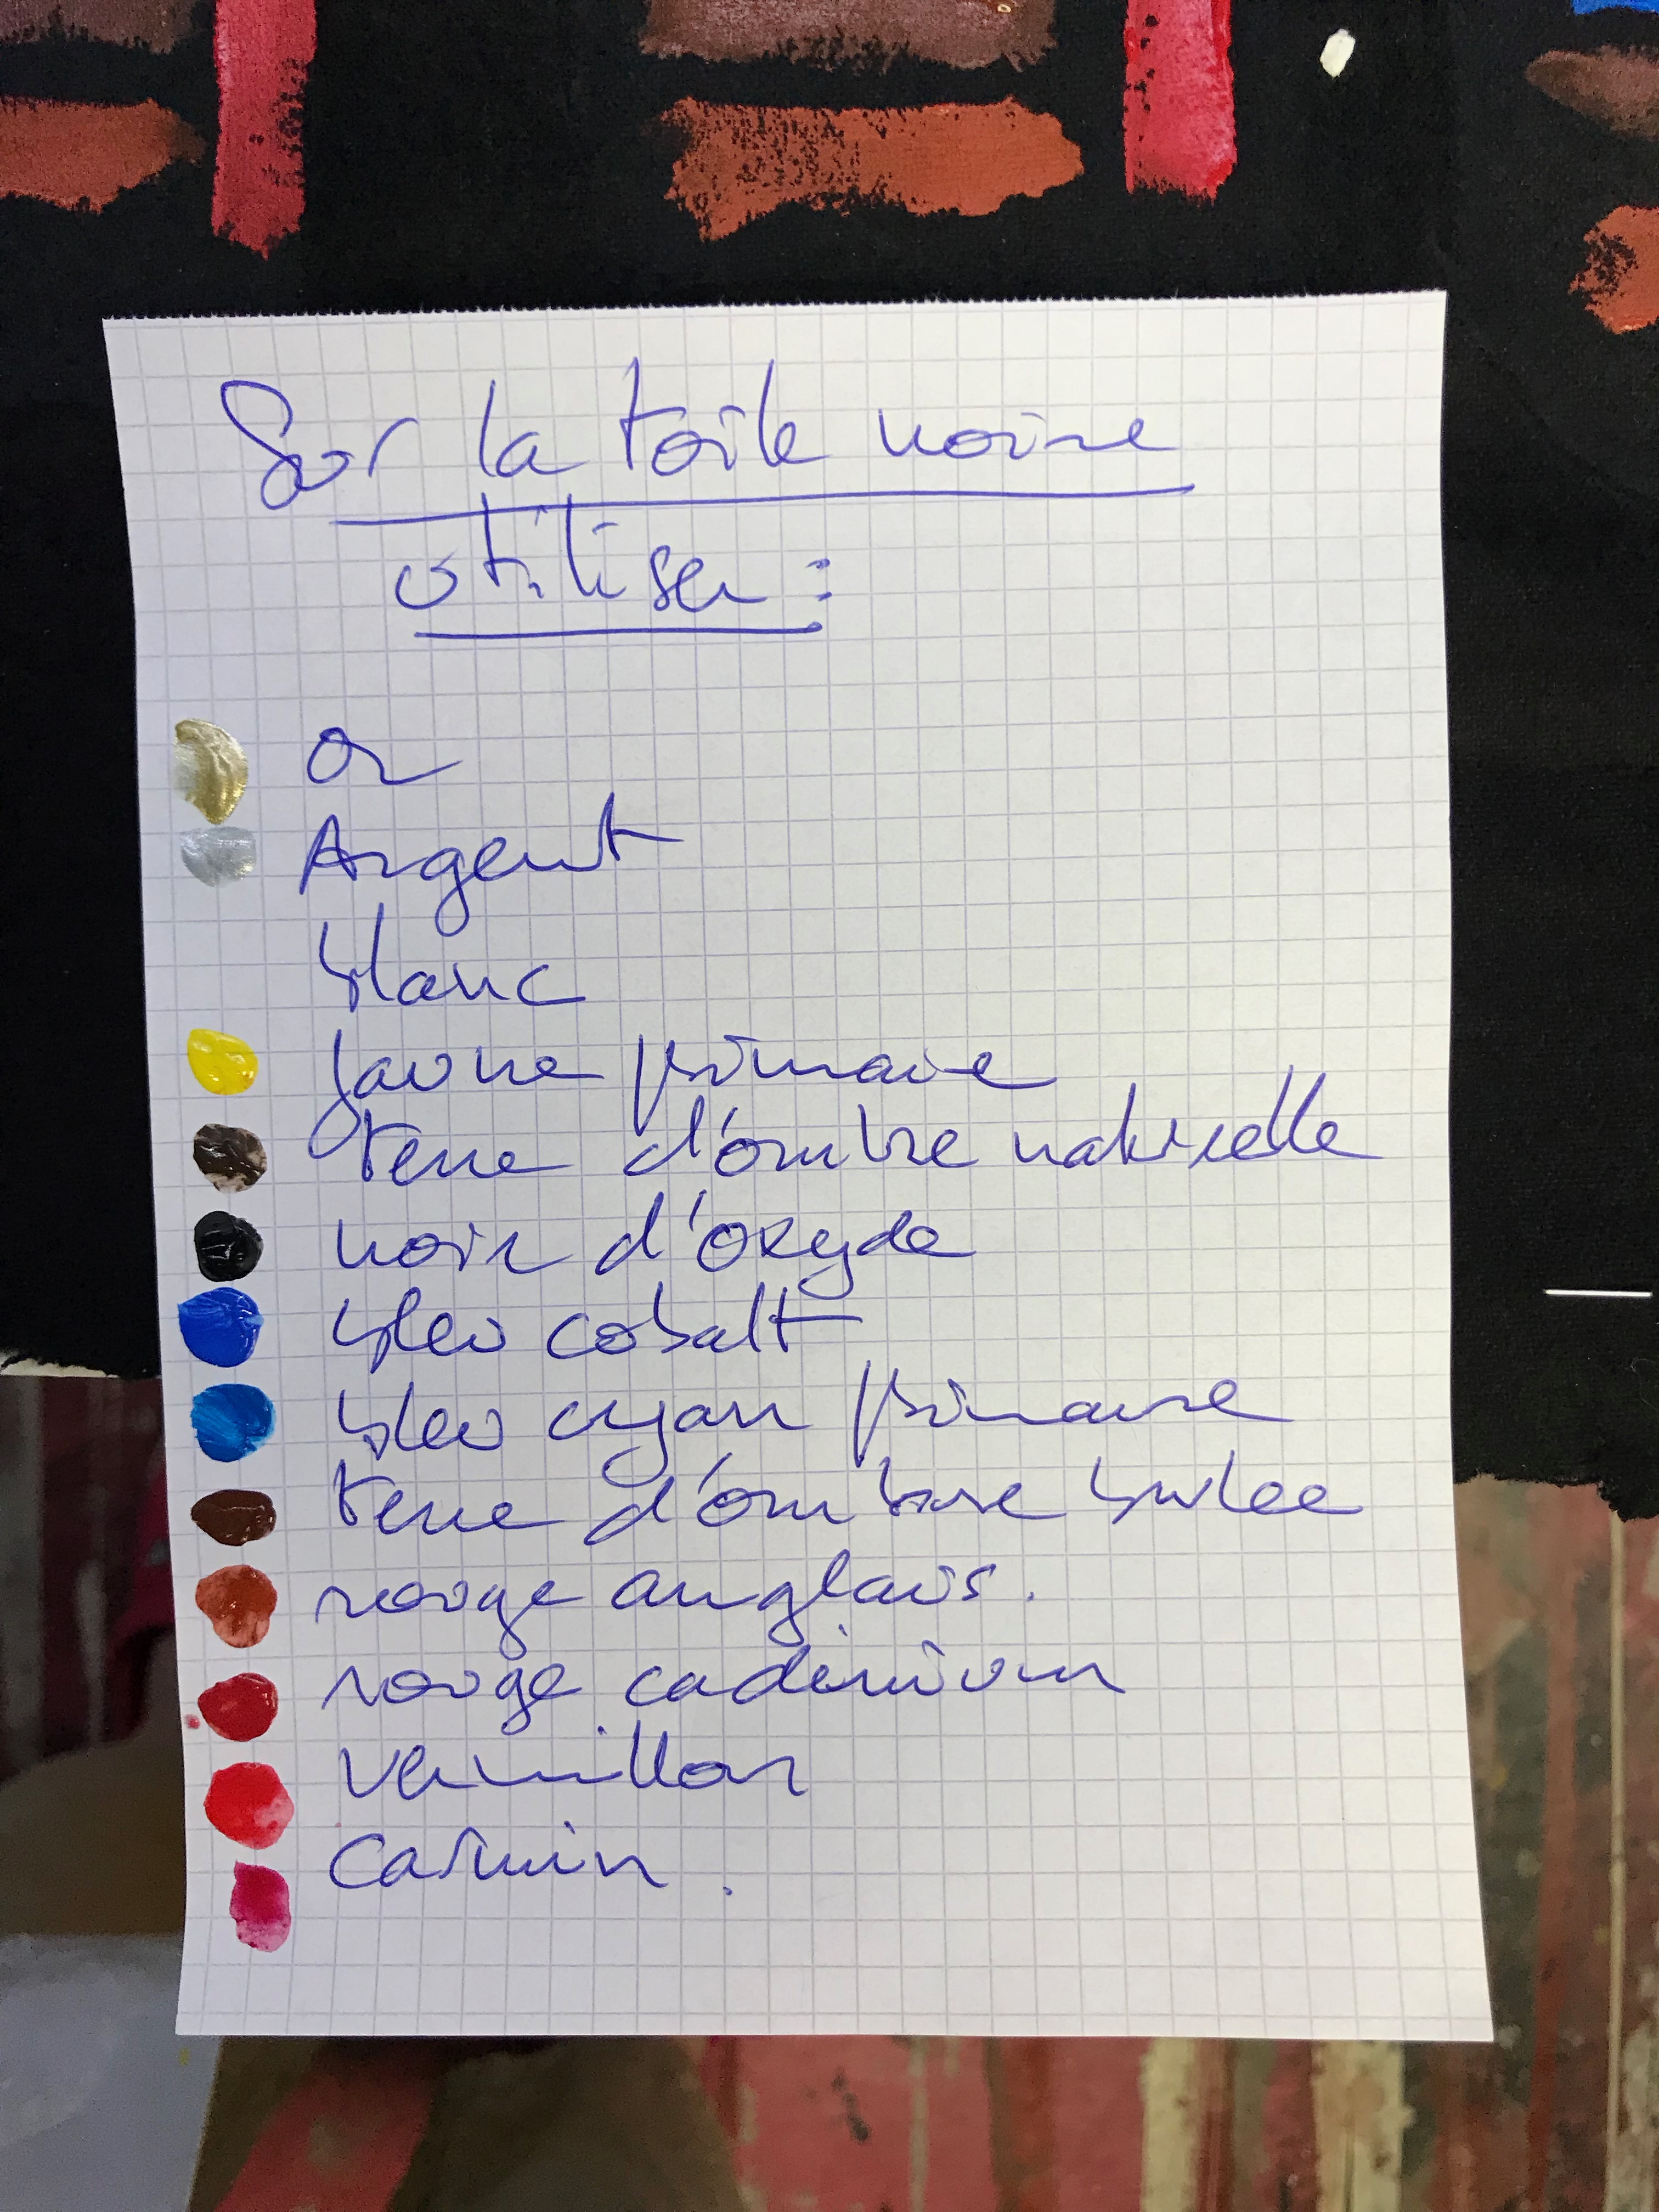 Sur la toile noire
utiliser :
Or
Argent
blanc
Jaune primaire
terre d'ombre naturelle
noir d'oxyde
bleu cobalt
bleu cyan primaire
terre d'ombre brulee
rouge anglais.
rouge cadmium
vermillon
Carmin.